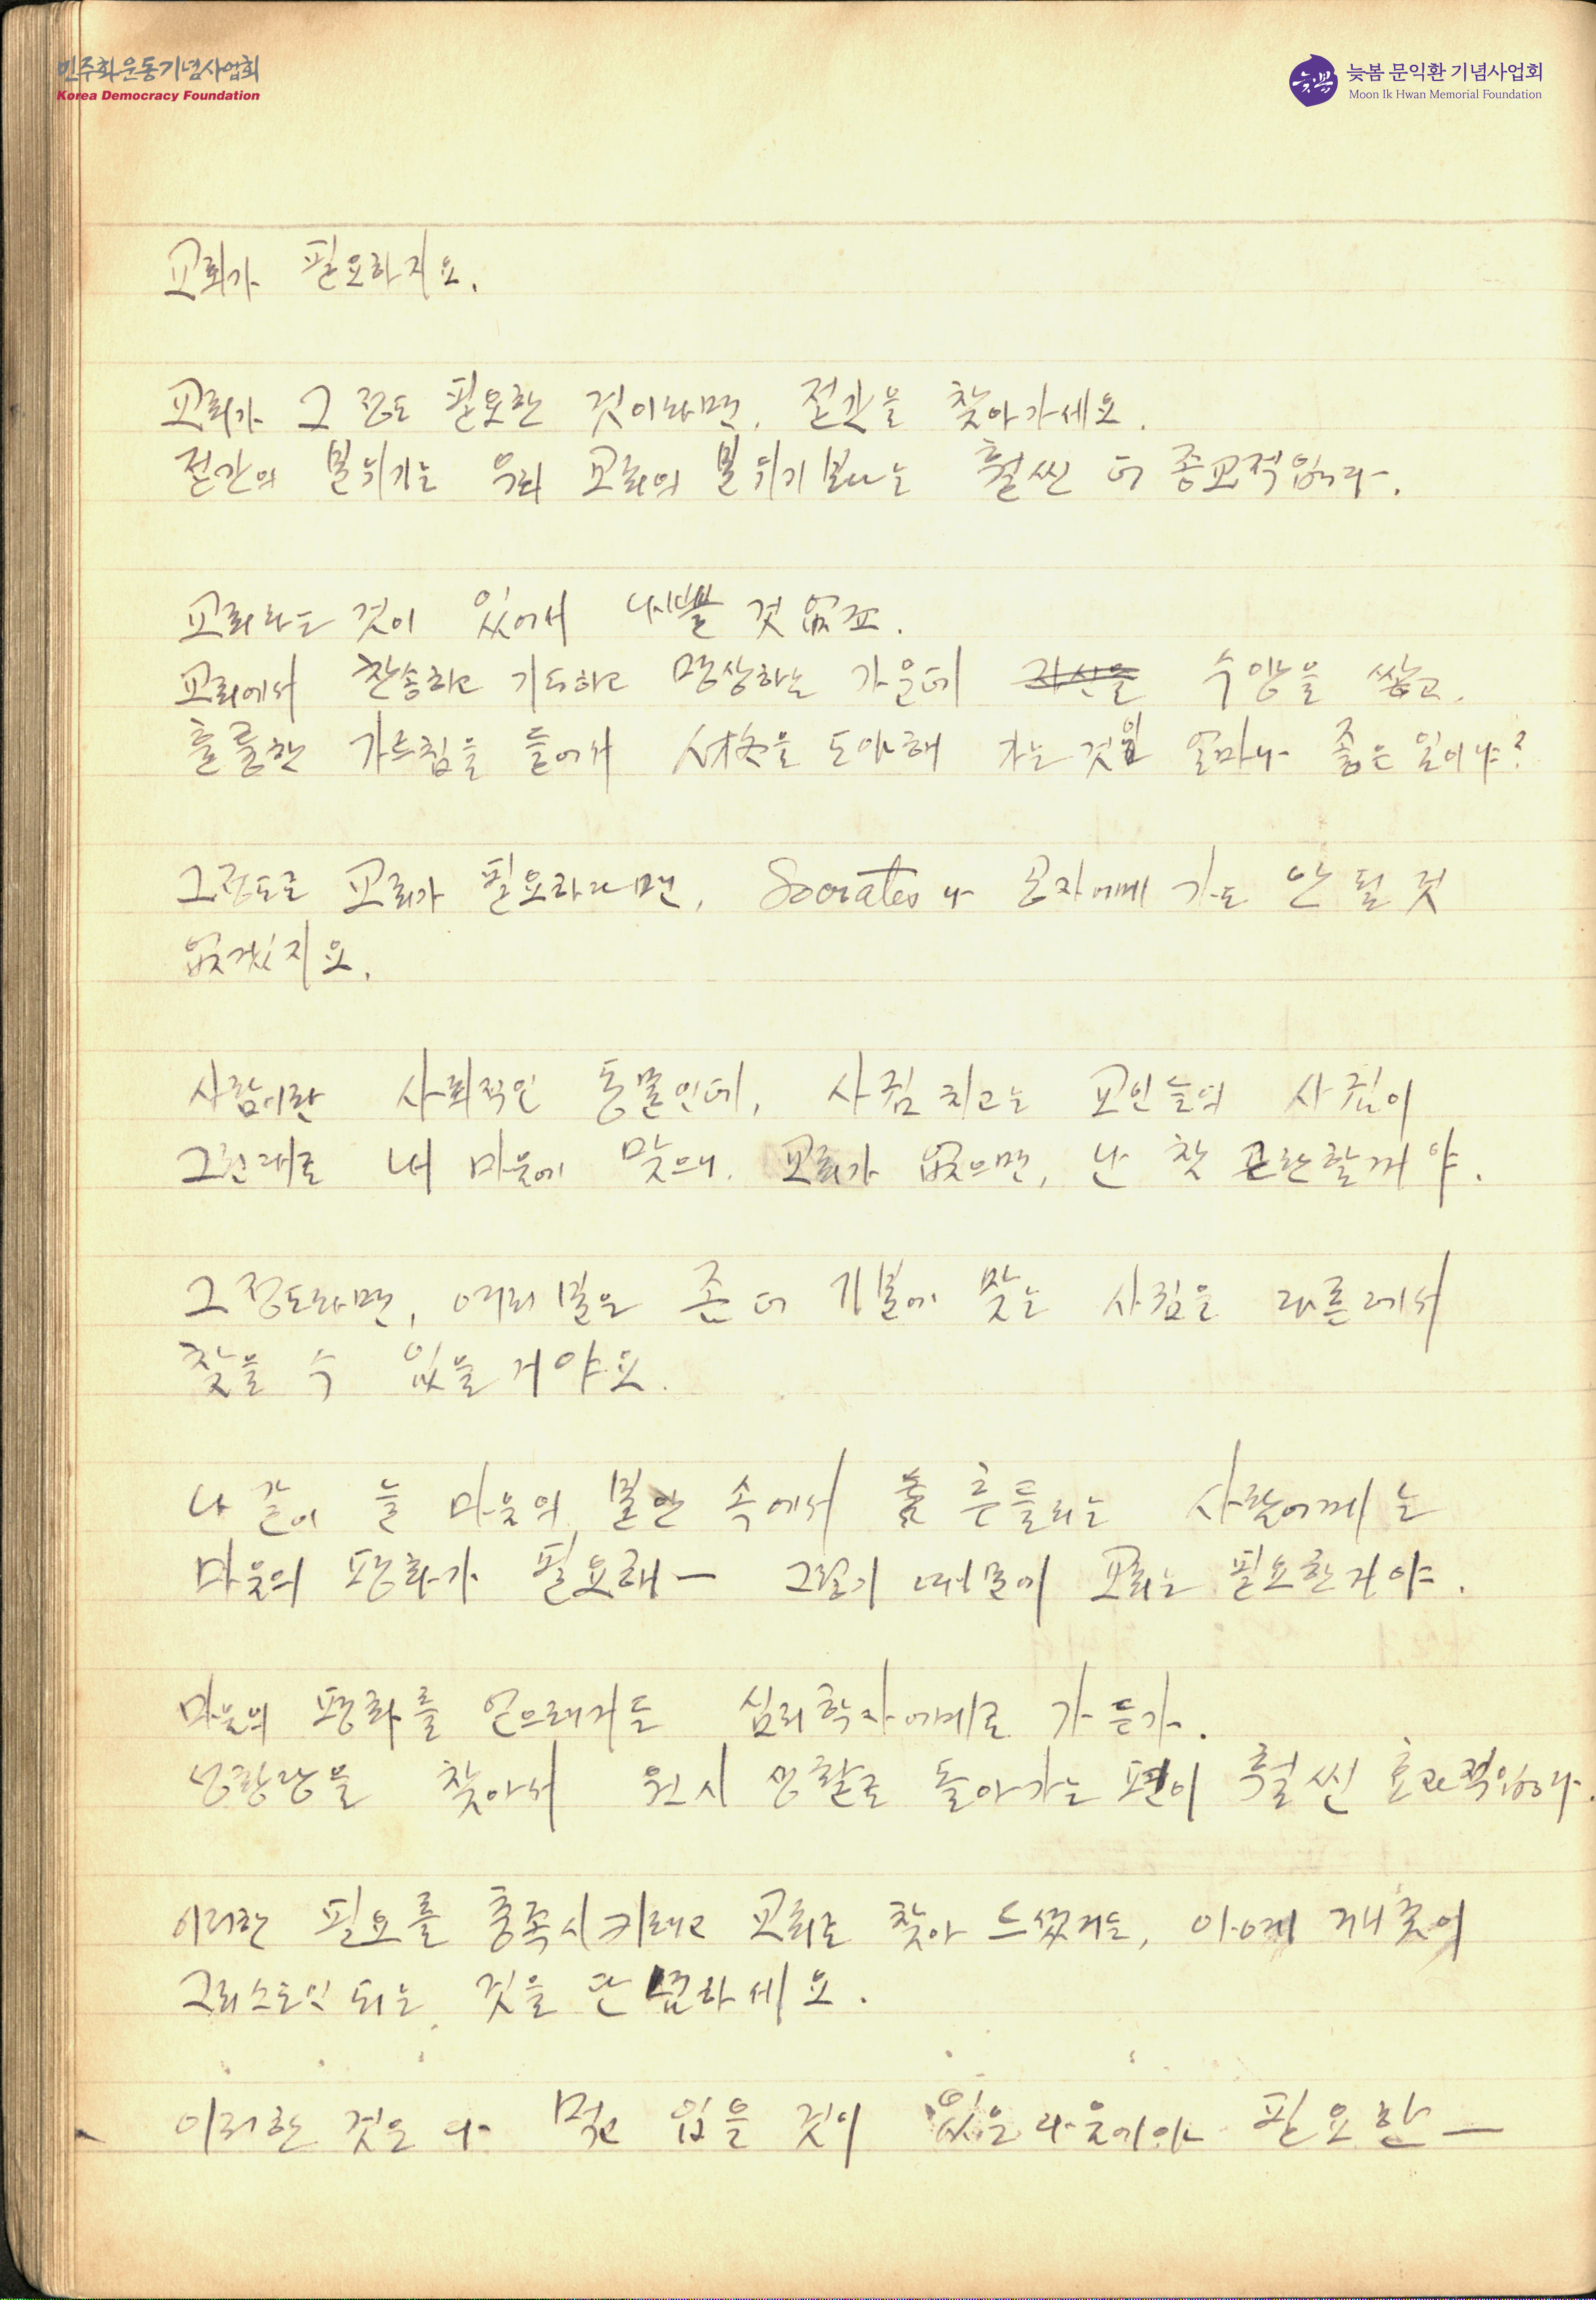 민주화운동기념사업회
Korea Democracy Foundation
늦봄 문익환 기념사업회
Moon Ik Hwan Memorial Foundation
교회가 필요하지요.
교회가 그 정도 필요한 것이라면, 절간을 찾아가세요.
절간의 분위기는 우리 교회의 분위기보다는 훨씬 더 종교적입니다.
교회라는 것이 있어서 나쁠 것 없죠.
교회에서 찬송하고 기도하고 명상하는 가운데 자신을 수양을 쌓고,
훌륭한 가르침을 들어서 人格을 도야해 가는 것이 얼마나 좋은 일이냐?
그 정도로 교회가 필요하다면, Socrates나 공자에게 가도 안 될 것
없겠지요.
사람이란 사회적인 동물인데, 사귐 치고는 교인들의 사귐이
그런대로 내 마음에 맞으니, 교회가 없으면, 난 참 곤란할꺼야.
그 정도라면, 여러분은 좀 더 기분에 맞는 사귐을 다른데서
찾을 수 있을 거야요.
나 같이 늘 마음의 불안 속에서 흔들리는 사람에게는
마음의 평화가 필요해— 그렇기 때문에 교회는 필요한거야.
마음의 평화를 얻으려거든 심리학자에게로 가든가.
찾아서 원시 생활로 돌아가는 편이 훨씬 효과적입니다.
이러한 필요를 충족시키려고 교회로 찾아 드셨거든, 아예 개춧이
그리스도인 되는 것을 단념하세요.
이러한 것은 다 먹고 입을 것이 있은 다음에야 필요한—